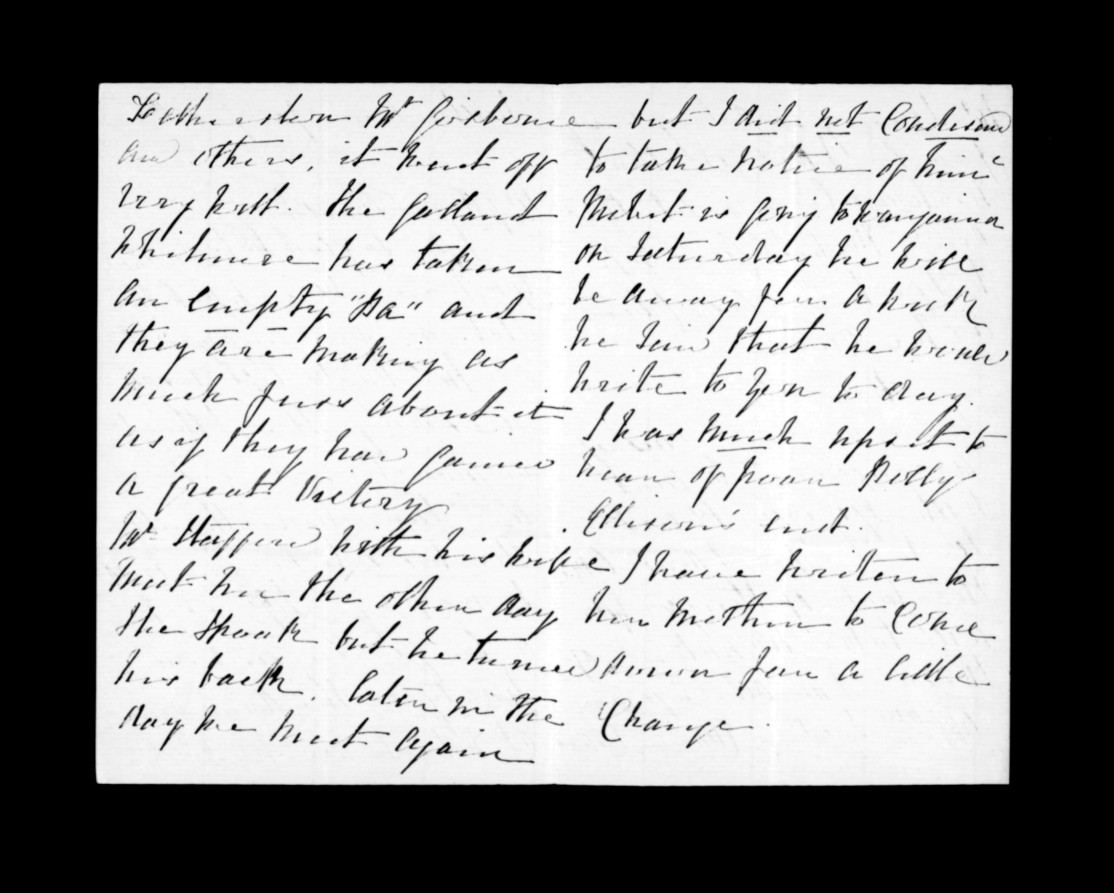 Featherston Mr Gisborne
and others, it went off
very well. The gallant
Whitmore has taken
an empty "Pa" and
they are making as
much fuss about it
as if they had gained
a great Victory
Mr Stafford with his wife
met me the other day
She spoak but he turned
his back. Later in the
day we meet again
but I did not Condesend
to take notice of him
is going to Wanganui
on Saturday he will
be away for a week
he said that he would
write to you to day.
I was much upset to
hear of poor
Ellison's end.
I have writen to
her mother to Come
down for a little
Change.